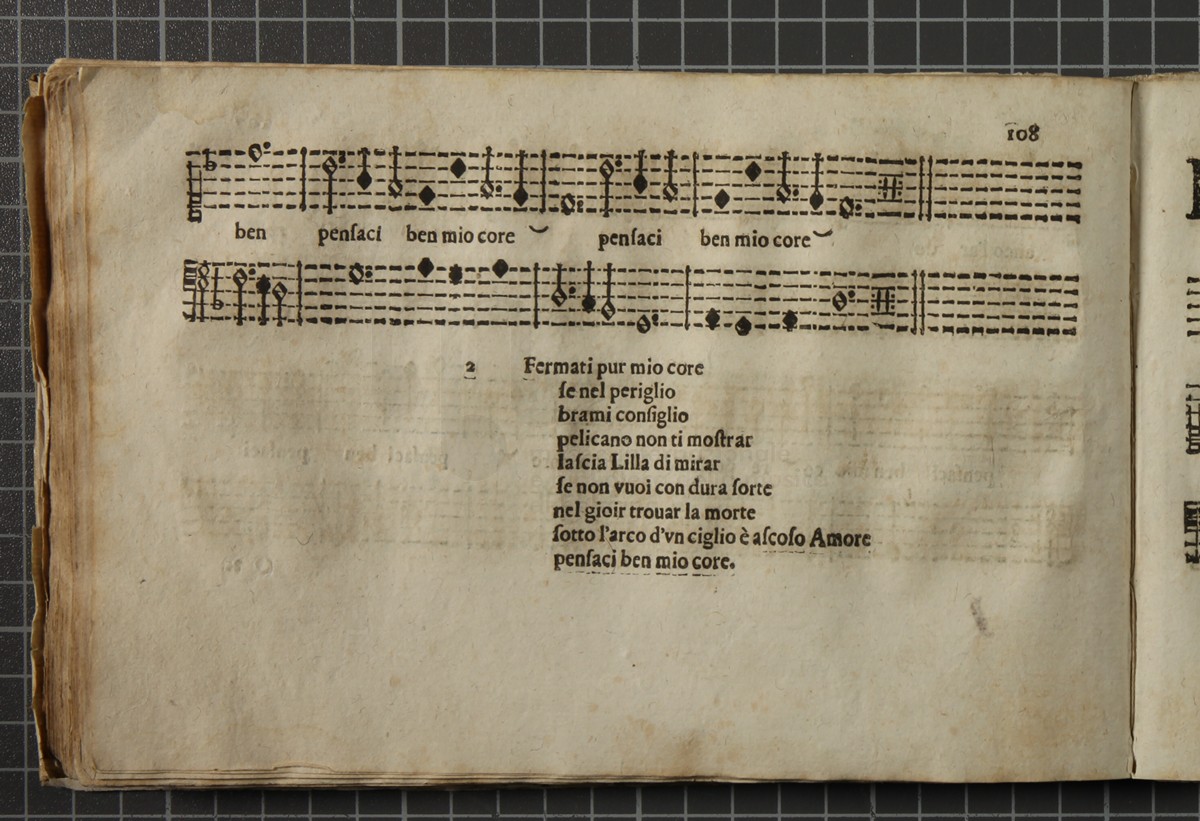 108
ben penſaci ben mio core penſaci ben mio core
2 Fermati pur mio core
ſe nel periglio
brami conſiglio
pelicano non ti moſtrar
laſcia Lilla di mirar
ſe non vuoi con dura ſorte
nel gioir trouar la morte
ſotto l'arco d'vn ciglio è aſcoſo Amore
penſaci ben mio core.